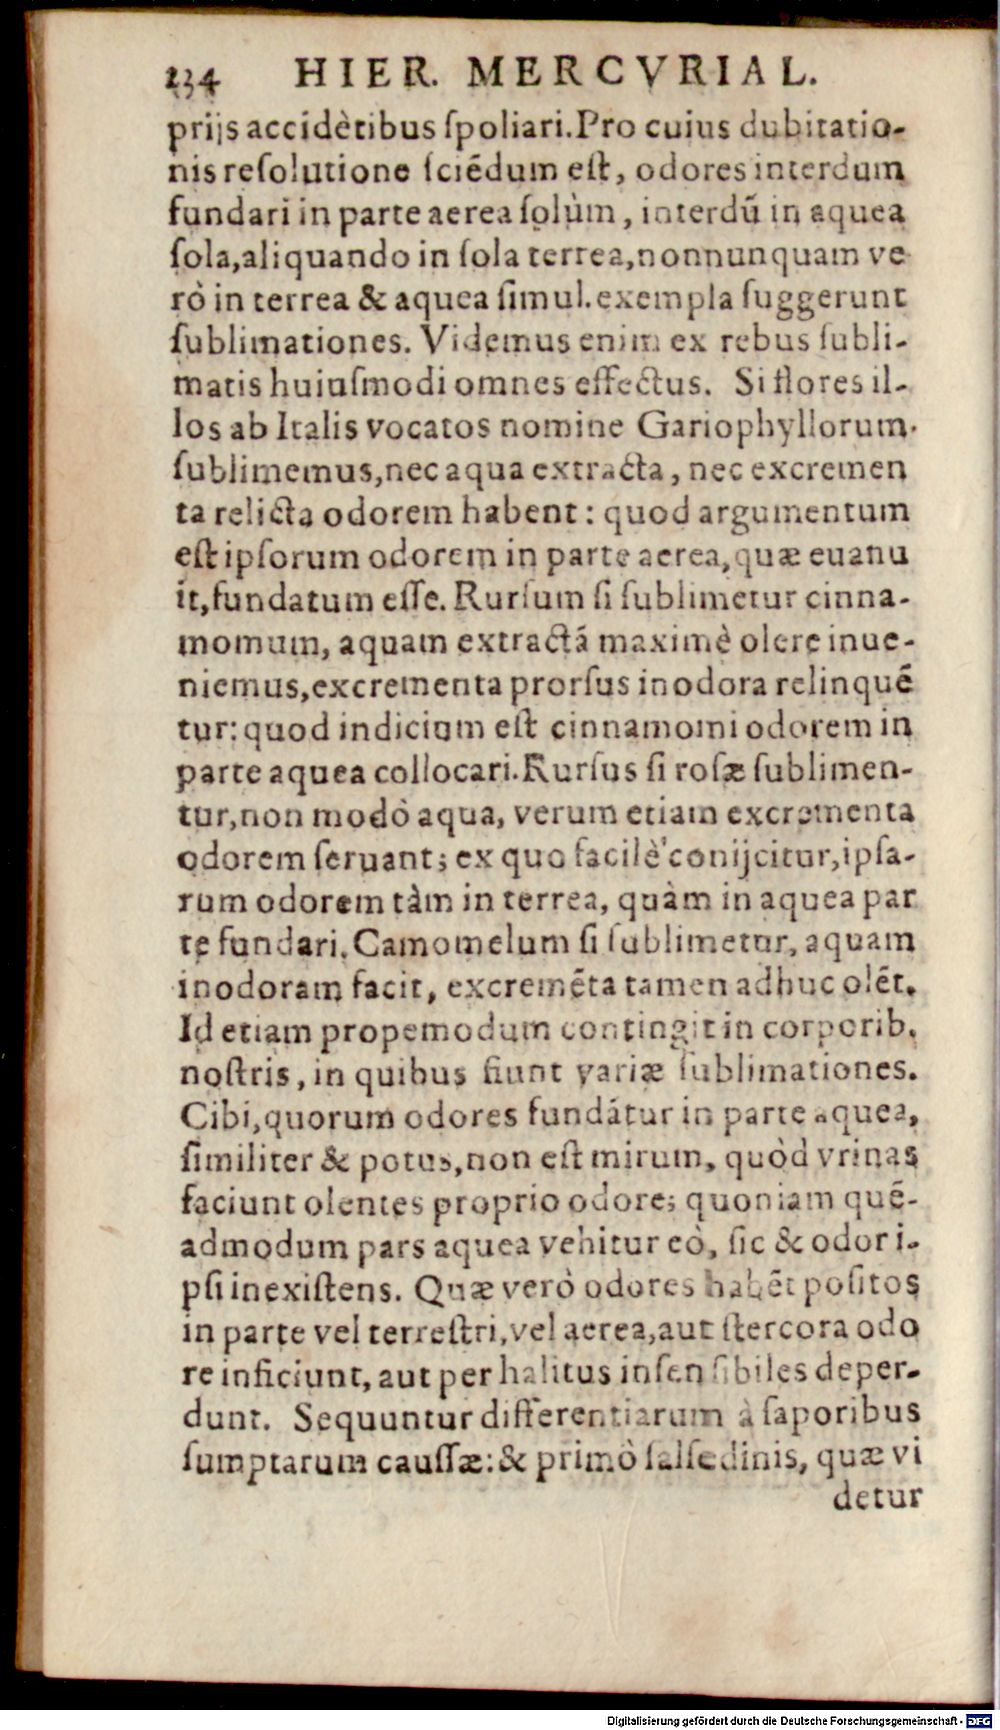 234 HIER. MERCVRIAL.
prijs accidètibus ſpoliari. Pro cuius dubitatio-
nis reſolutione ſciēdum eſt, odores interdum
fundari in parte aerea ſolùm, interdū in aquea
ſola, aliquando in ſola terrea, nonnunquam ve
rò in terrea & aquea ſimul. exempla ſuggerunt
ſublimationes. Videmus enim ex rebus ſubli-
matis huiuſmodi omnes effectus. Si flores il-
los ab Italis vocatos nomine Gariophyllorum
ſublimemus, nec aqua extracta, nec excremen
ta relicta odorem habent: quod argumentum
eſt ipſorum odorem in parte aerea, quæ euanu
it, fundatum eſſe. Rurſum ſi ſublimetur cinna-
momum, aquam extractā maximè olere inue-
niemus, excrementa prorſus inodora relinquē
tur: quod indicium eſt cinnamomi odorem in
parte aquea collocari. Rurſus ſi roſæ ſublimen-
tur, non modò aqua, verum etiam excrementa
odorem ſeruant; ex quo facilè conijcitur, ipſa-
rum odorem tàm in terrea, quàm in aquea par
te fundari. Camomelum ſi ſublimetur, aquam
inodoram facit, excremēta tamen adhuc olēt.
Id etiam propemodum contingit in corporib.
noſtris, in quibus fiunt variæ ſublimationes.
Cibi, quorum odores fundātur in parte aquea,
ſimiliter & potus, non eſt mirum, quòd vrinas
faciunt olentes proprio odore; quoniam quē-
admodum pars aquea vehitur eò, ſic & odor i-
pſi inexiſtens. Quæ verò odores habēt poſitos
in parte vel terreſtri, vel aerea, aut ſtercora odo
re inficiunt, aut per halitus inſenſibiles deper-
dunt. Sequuntur differentiarum à ſaporibus
ſumptarum cauſſæ: & primò ſalſedinis, quæ vi
detur
Digitalisierung gefördert durch die Deutsche Forschungsgemeinschaft - DFG